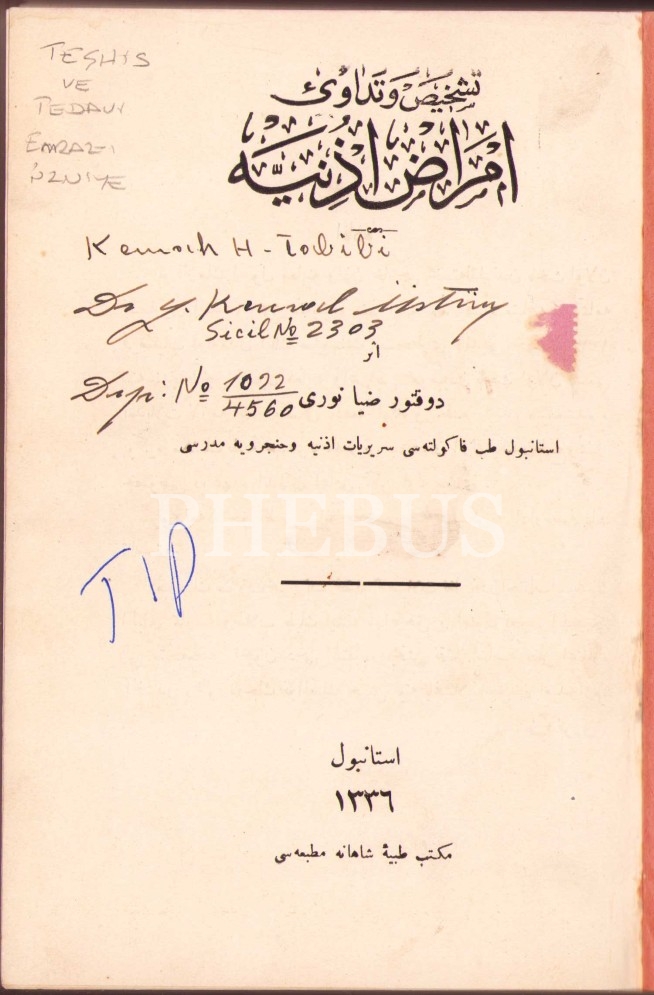 TEŞHİS
VE
TEDAVİ
EMRAZ-I
ÜZNİYE
تشخیص وتداوئ
امراض اذنیه
Kemah H - Tabibi
Dr Y. Kemal Üstün
Sicil № 2303
اثر
Dip: № 1022/4560
دوقتور ضیا نوری
استانبول طب فاکولتەسی سریریات اذنیه وحنجرویه مدرسی
PHEBUS
TIP
استانبول
١٣٣٦
مکتب طبیۀ شاهانه مطبعەسی